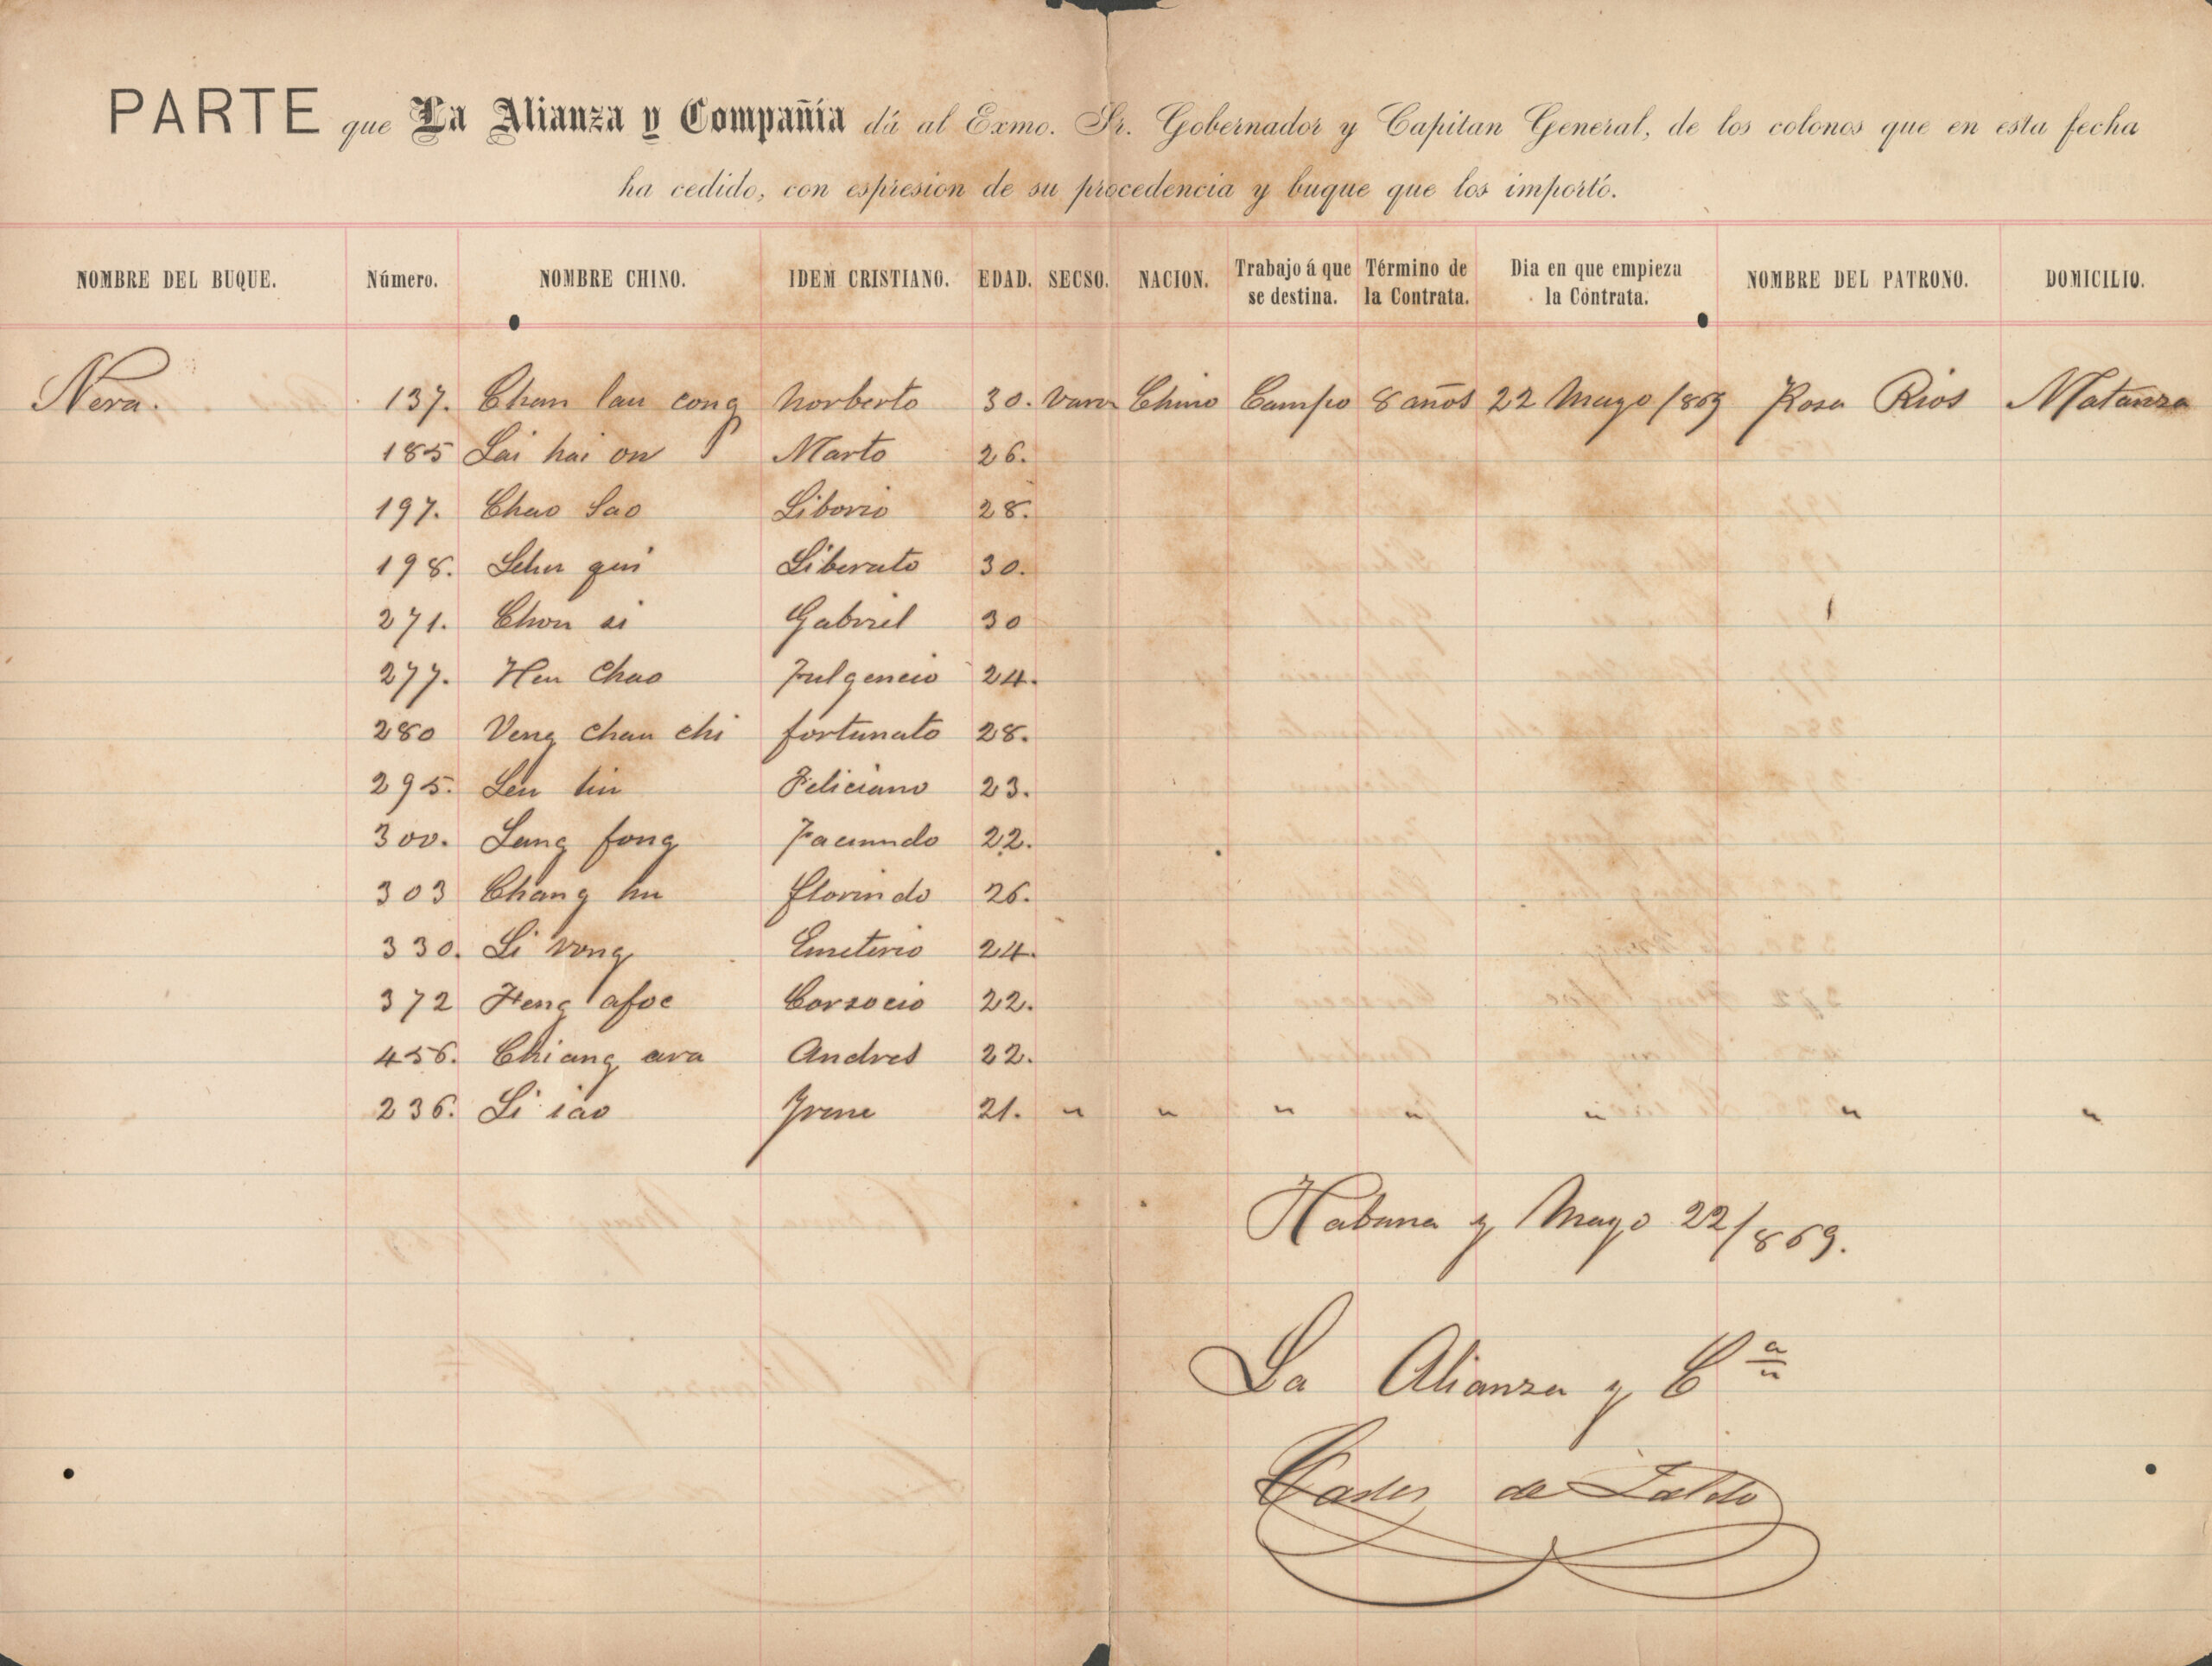 PARTE que La Alianza y Compañía dá al Exmo. Sr. Gobernador y Capitan General, de los colonos que en esta fecha
ha cedido, con espresion de su procedencia y buque que los importó.
NOMBRE DEL BUQUE. Número. NOMBRE CHINO. IDEM CRISTIANO. EDAD. SECSO. NACION. Trabajo á que se destina. Término de la Contrata. Dia en que empieza la Contrata. NOMBRE DEL PATRONO. DOMICILIO.
Nera. 137. Chan lau cong Norberto 30. varon Chino Campo 8 años 22 Mayo /869 Rosa Rios Matanza
185 Lai hai on Marto 26.
197. Chao Sao Liborio 28.
198. gui Liberato 30.
271. Chon si Gabriel 30
277. Hen Chao Fulgencio 24.
280 Veng Chau chi fortunato 28.
295. Leu lin Feliciano 23.
300. Lang fong Facundo 22.
303 Chang hu florindo 26.
330. Li vong Emeterio 24.
372 Heng afoc 22.
456. Chiang ava Andres 22.
236. Li iao Yrene 21. " " " " " " "
Habana y Mayo 22/869.
La Alianza y Cª
de Zaldo